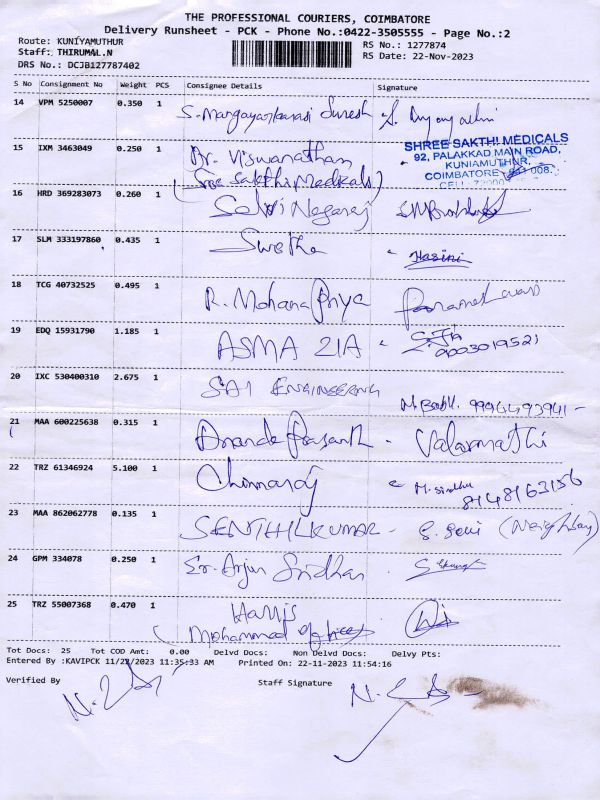 THE PROFESSIONAL COURIERS, COIMBATORE
Delivery Runsheet - PCK - Phone No.:0422-3505555 - Page No.:2
Route: KUNIYAMUTHUR
RS No.: 1277874
Staff: THIRUMAL.N
RS Date: 22-Nov-2023
DRS No.: DCJB127787402
S No Consignment No Weight PCS Consignee Details Signature
14 VPM 5250007 0.350 1 S. Mangayarkarasi Suresh
15 IXM 3463049 0.250 1 Dr. Viswanathan
(Sree Sakthi Medicals)
SHREE SAKTHI MEDICALS
92, PALAKKAD MAIN ROAD,
KUNIAMUTHUR,
COIMBATORE - 641 008.
16 HRD 369283073 0.260 1 Selvi Nagaraj
17 SLM 333197860 0.435 1 Swetha Hasini
18 TCG 40732525 0.495 1 R. Mohana Priya Parameswari
19 EDQ 15931790 1.185 1 ASMA ZIA
9003019521
20 IXC 530400310 2.675 1 SAI ENGINEERING
21 MAA 600225638 0.315 1 Ananda Prasanth - Valarmathi
22 TRZ 61346924 5.100 1 Chinnaraj M. Sindhu
8148163156
23 MAA 862062778 0.135 1 SENTHILKUMAR - S. Selvi (Neighbay)
24 GPM 334078 0.250 1 Er. Arjun Sridhar
25 TRZ 55007368 0.470 1 Harris
Mohammad
Tot Docs: 25 Tot COD Amt: 0.00 Delvd Docs: Non Delvd Docs: Delvy Pts:
Entered By :KAVIPCK 11/22/2023 11:35:33 AM Printed On: 22-11-2023 11:54:16
Verified By Staff Signature